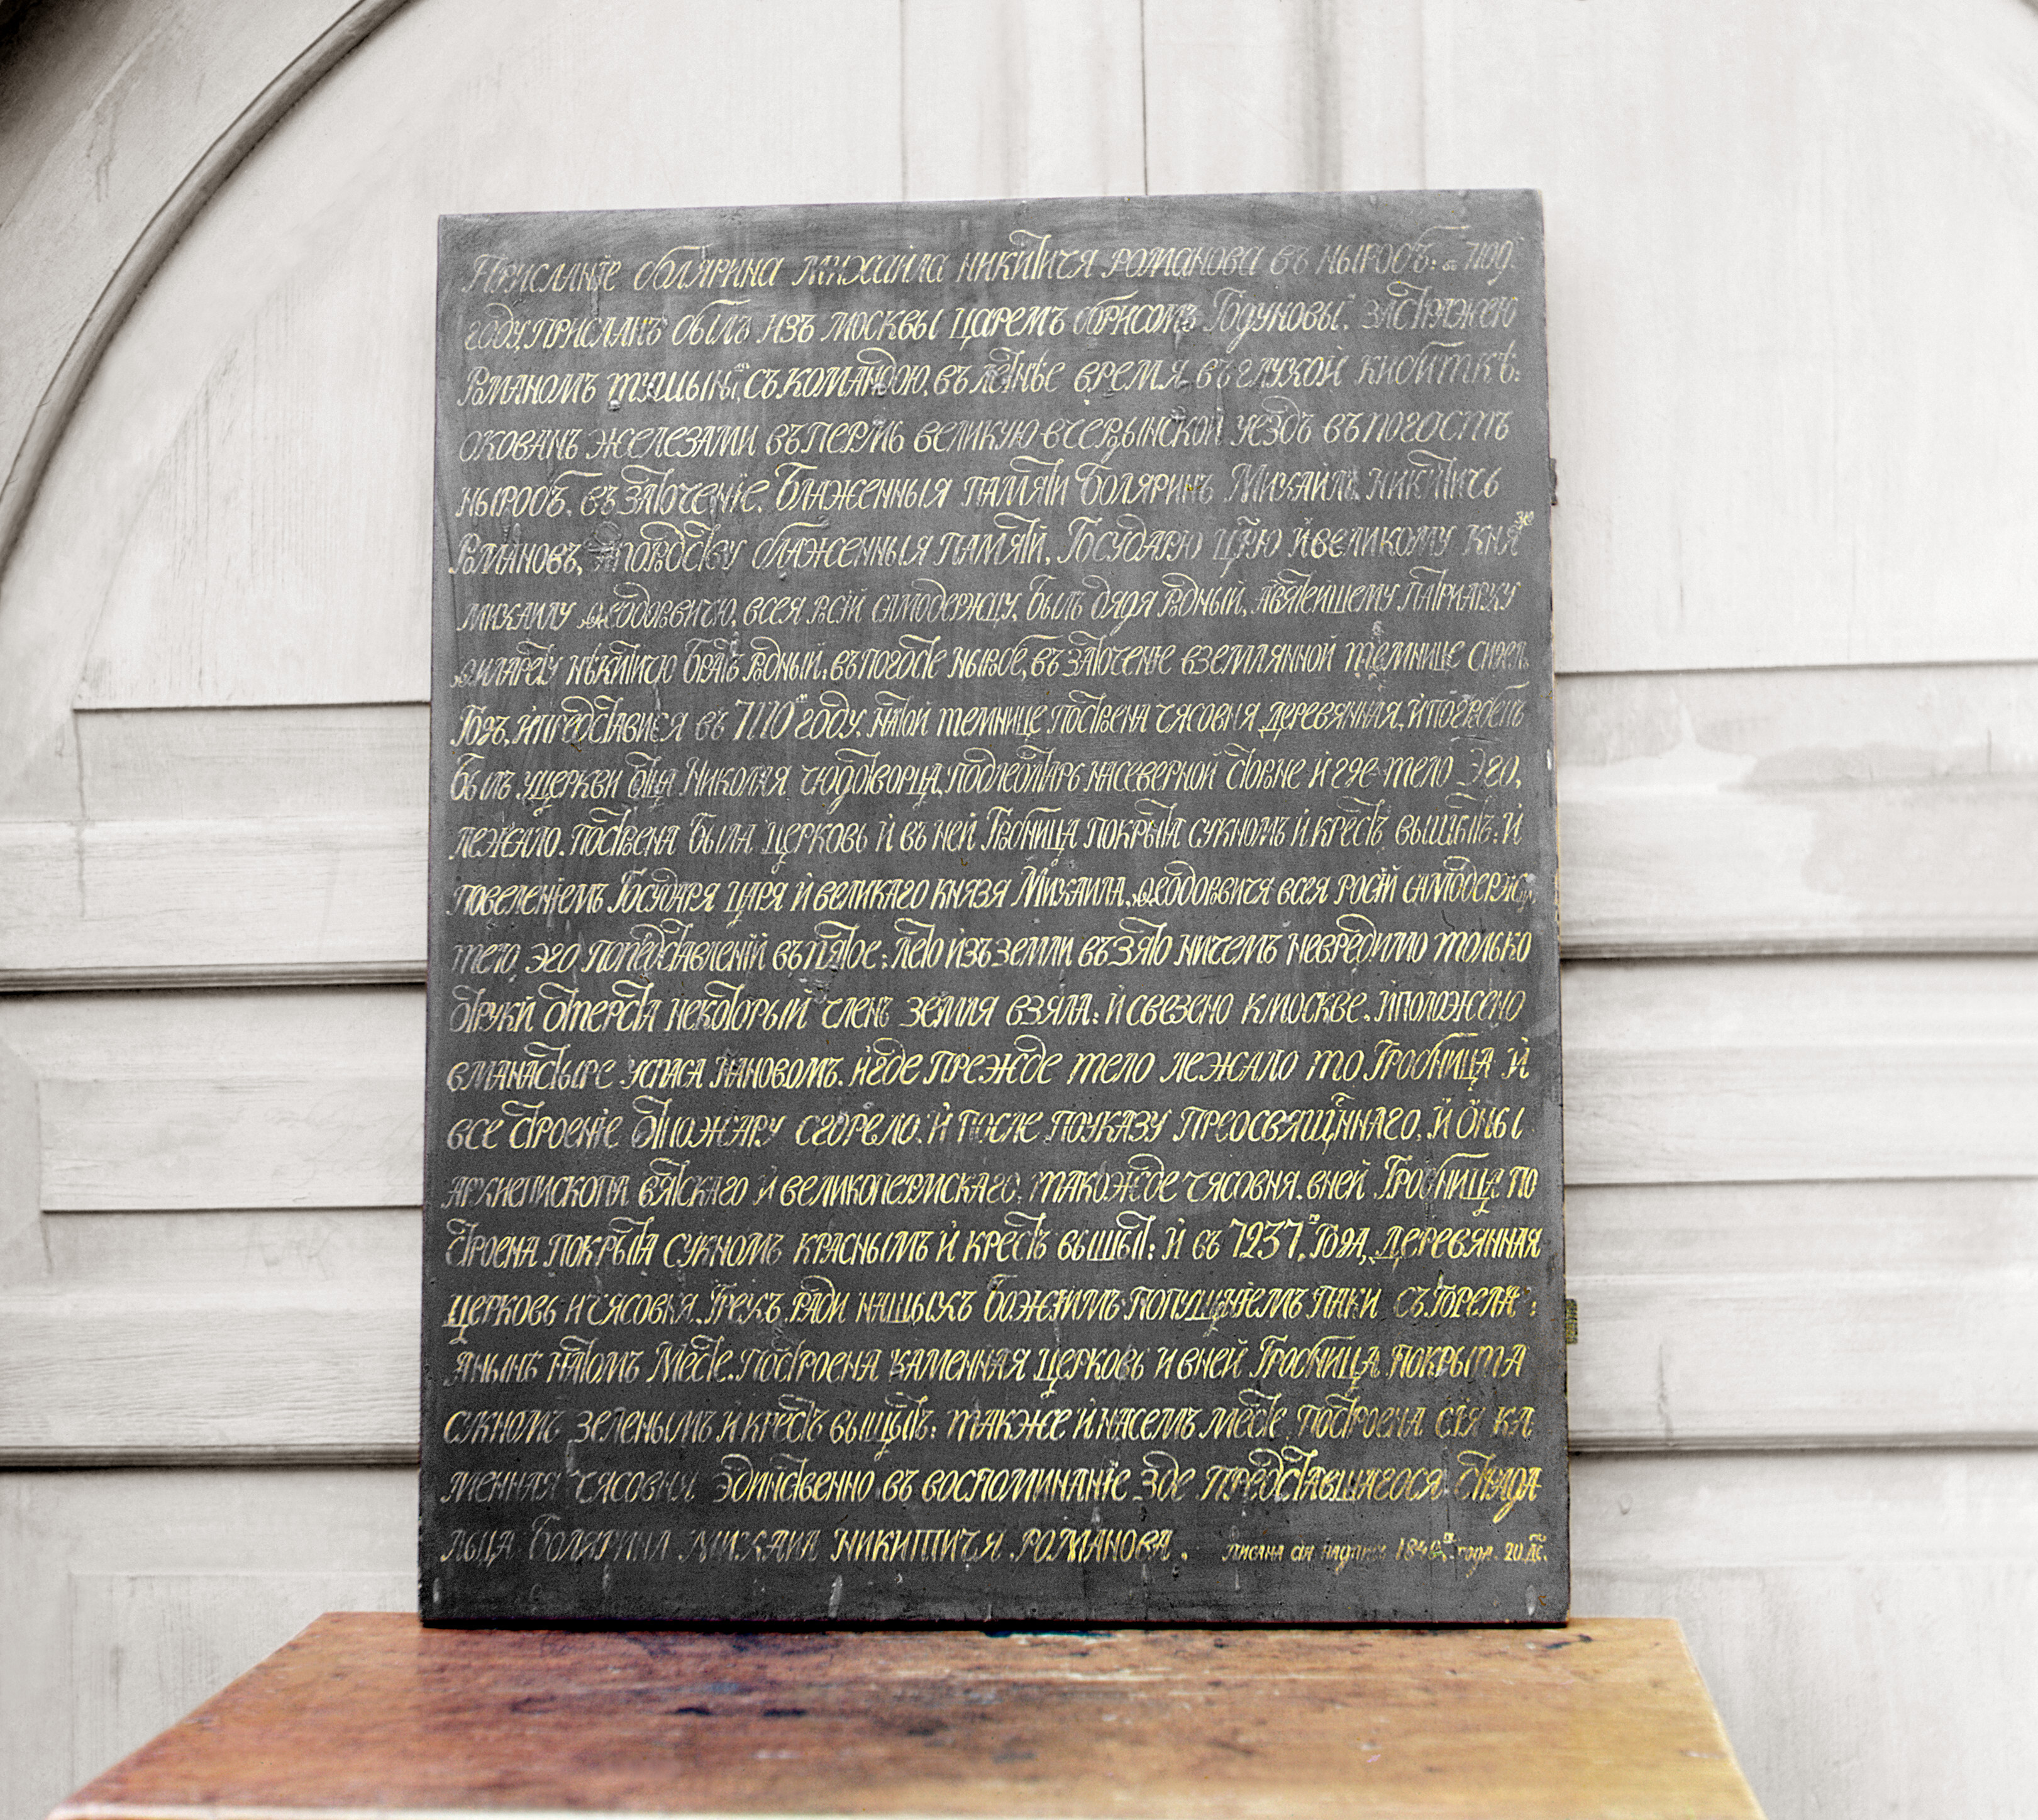 Присланїе болярина михаила никитича романова въ ныробъ:
году, присланъ былъ изъ москвы царемъ борисомъ Годуновы
романомъ тушины, съ командою, въ летнье время въ глухой кибиткѣ:
окованъ железами въ пермь великую в чердынской уездъ въ погостъ
ныробъ, въ заточенїе. Блаженныя памяти Боляринъ Михаилъ никитичь
романовъ, породству блаженныя памяти, Государю црю и великому кня зю
михаилу ѳеодоровичю, всея росїй самодержцу, былъ дядя родный, патриарху
никитичю братъ родный. въ погосте ныробе, въ заточенїе вземлянной темнице сиделъ
Годъ, и представися въ 7110 году, натой темнице построена часовня деревянная, и погребенъ
Былъ уцеркви отца Николая чюдотворца, подлеолтарь насеверной стороне и где тело эго,
лежало. построена была церковь и въ ней Гробница покрыта сукномъ и крестъ вышытъ: и
повеленїемъ Государя царя и великаго князя Михаила, ѳеодоровича всея росїй самодержс
тело эго попредставленїй въ пятое: лето изъ земли въ зято ничемъ невредимо только
отруки отперста некоторый членъ земля взяла: и свезено кмоскве. и положено
вманастыре успаса нановомъ. и где прежде тело лежало то Гробница и
все строенїе отпожару сгорело. и после поуказу преосвященнаго, и оны
архиепископа вятскаго и великопермскаго: такожде часовня. вней Гробница по
строена покрыта сукномъ краснымъ и крестъ вышытъ: и въ 7237, года, деревянная
церковь и часовня. Грехъ ради нашыхъ божїимъ попущенїемъ паки съгорела:
янынѣ натомъ месте. построена каменная церковь и вней Гробница покрыта
сукномъ зеленымъ и крестъ вышытъ: также и насемъ месте построена сїя ка
менная часовня эдинственно въ воспоминанїе зде представшагося страда
льца Болярина михаила никитича романова. писана сїя надпись года. 20